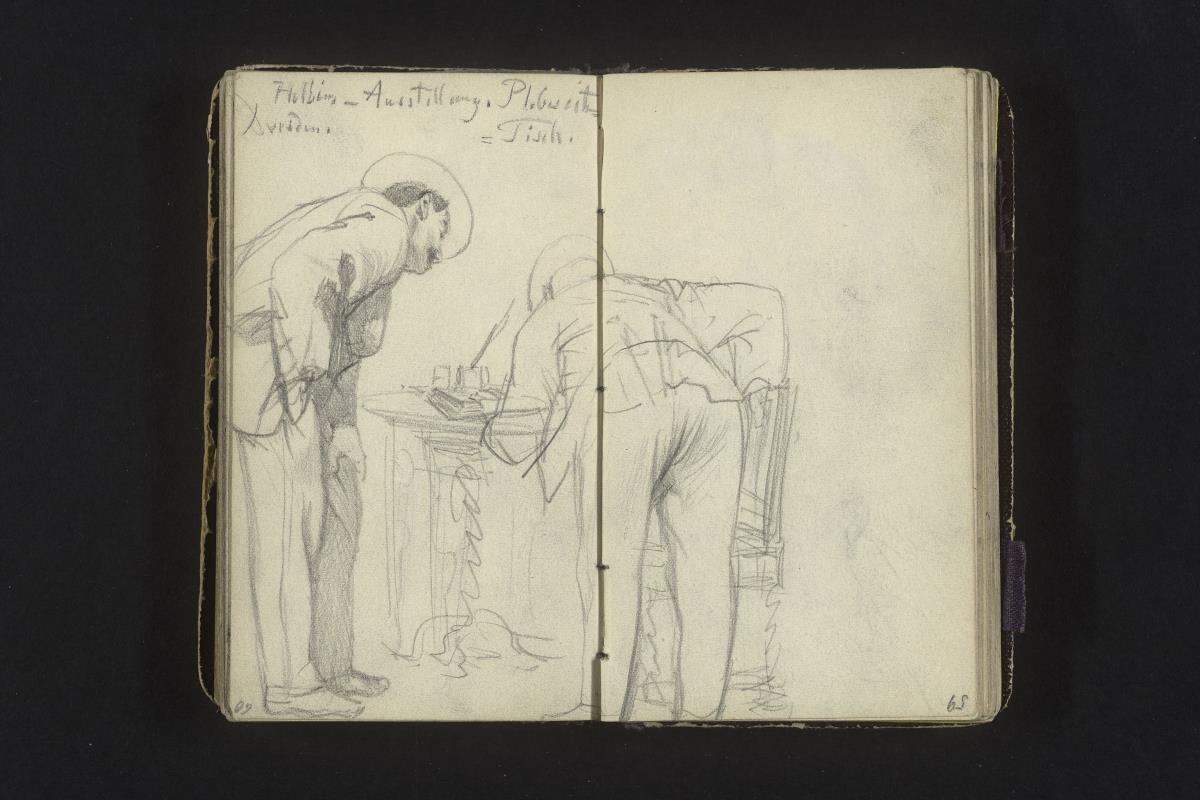 Holbein – Ausstellung. Plebiscit
Dresden. = Tisch.
60
59